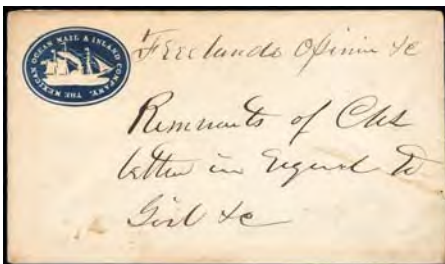 THE MEXICAN OCEAN MAIL & INLAND COMPANY.
Freelands Opinion &c
Remnants of Chs
letter in regard to
Girl &c